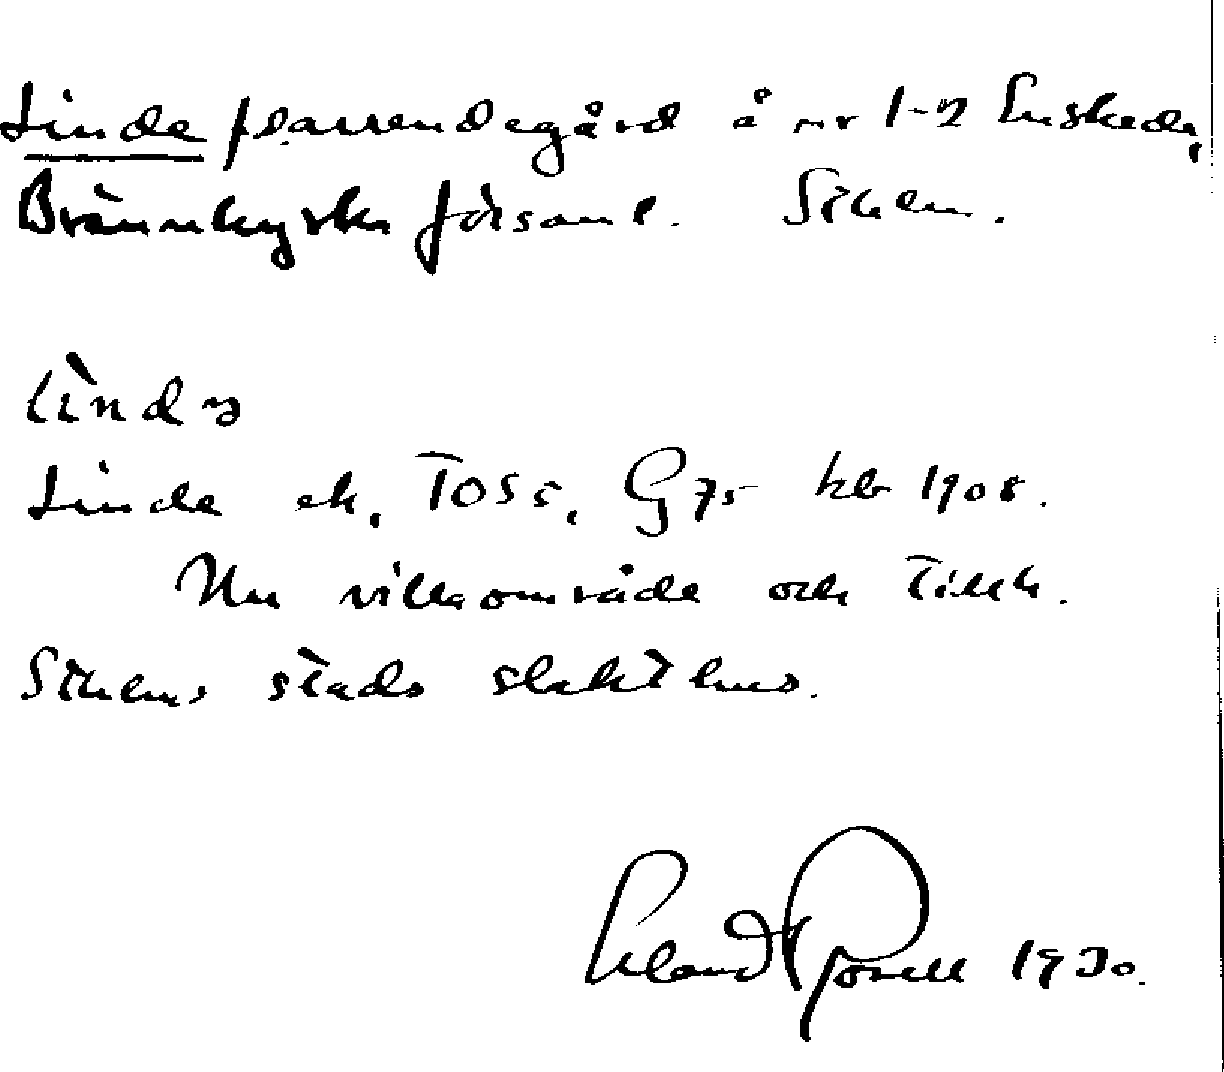 Linde f.d. arrendegård å nr 1-2 Enskede,
Brännkyrka församl. Sthlm.
lìndə
Linde ek, TOS 5, G 75 kb 1908.
Nu villaområde och tillh.
Sthlms stads slakthus.
Erland Rosell 1930.